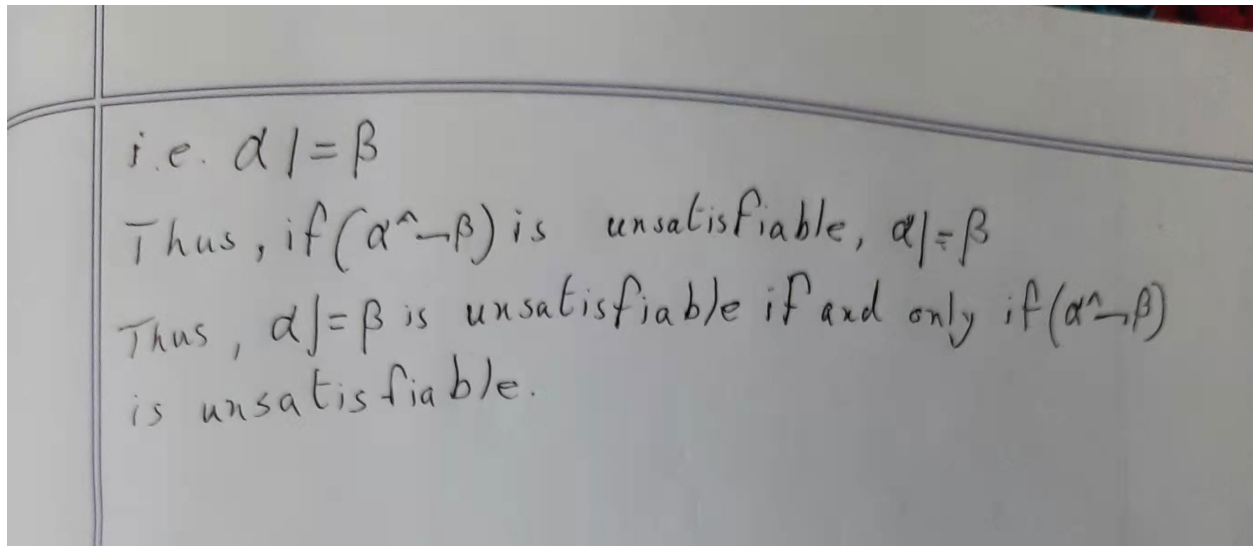 i.e. α |= β
Thus, if (α ^ ¬β) is unsatisfiable, α |= β
Thus, α |= β is unsatisfiable if and only if (α ^ ¬β)
is unsatisfiable.